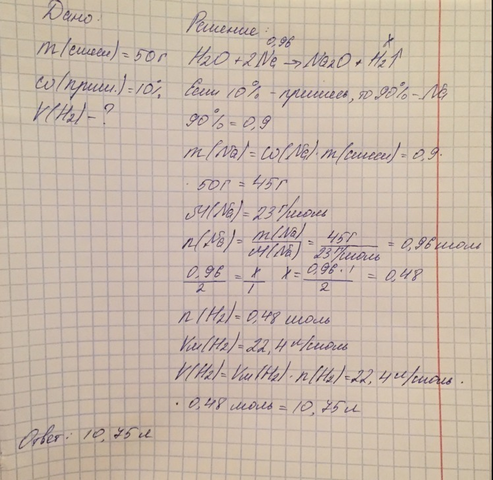 Дано:
m(смеси)=50г
ω(прим.)=10%
V(H₂)-?
Решение:
0,96 x
H₂O + 2Na → Na₂O + H₂↑
Если 10% - примесь, то 90% - Na
90% = 0,9
m(Na)=ω(Na)·m(смеси)=0,9·
·50г = 45г
M(Na)=23г/моль
n(Na)=m(Na)/M(Na)=45г/23г/моль=0,96моль
0,96/2 = x/1 x=0,96·1/2 = 0,48
n(H₂)=0,48 моль
Vм(H₂)=22,4л/моль
V(H₂)=Vм(H₂)·n(H₂)=22,4л/моль·
·0,48 моль = 10,75л
Ответ: 10,75л